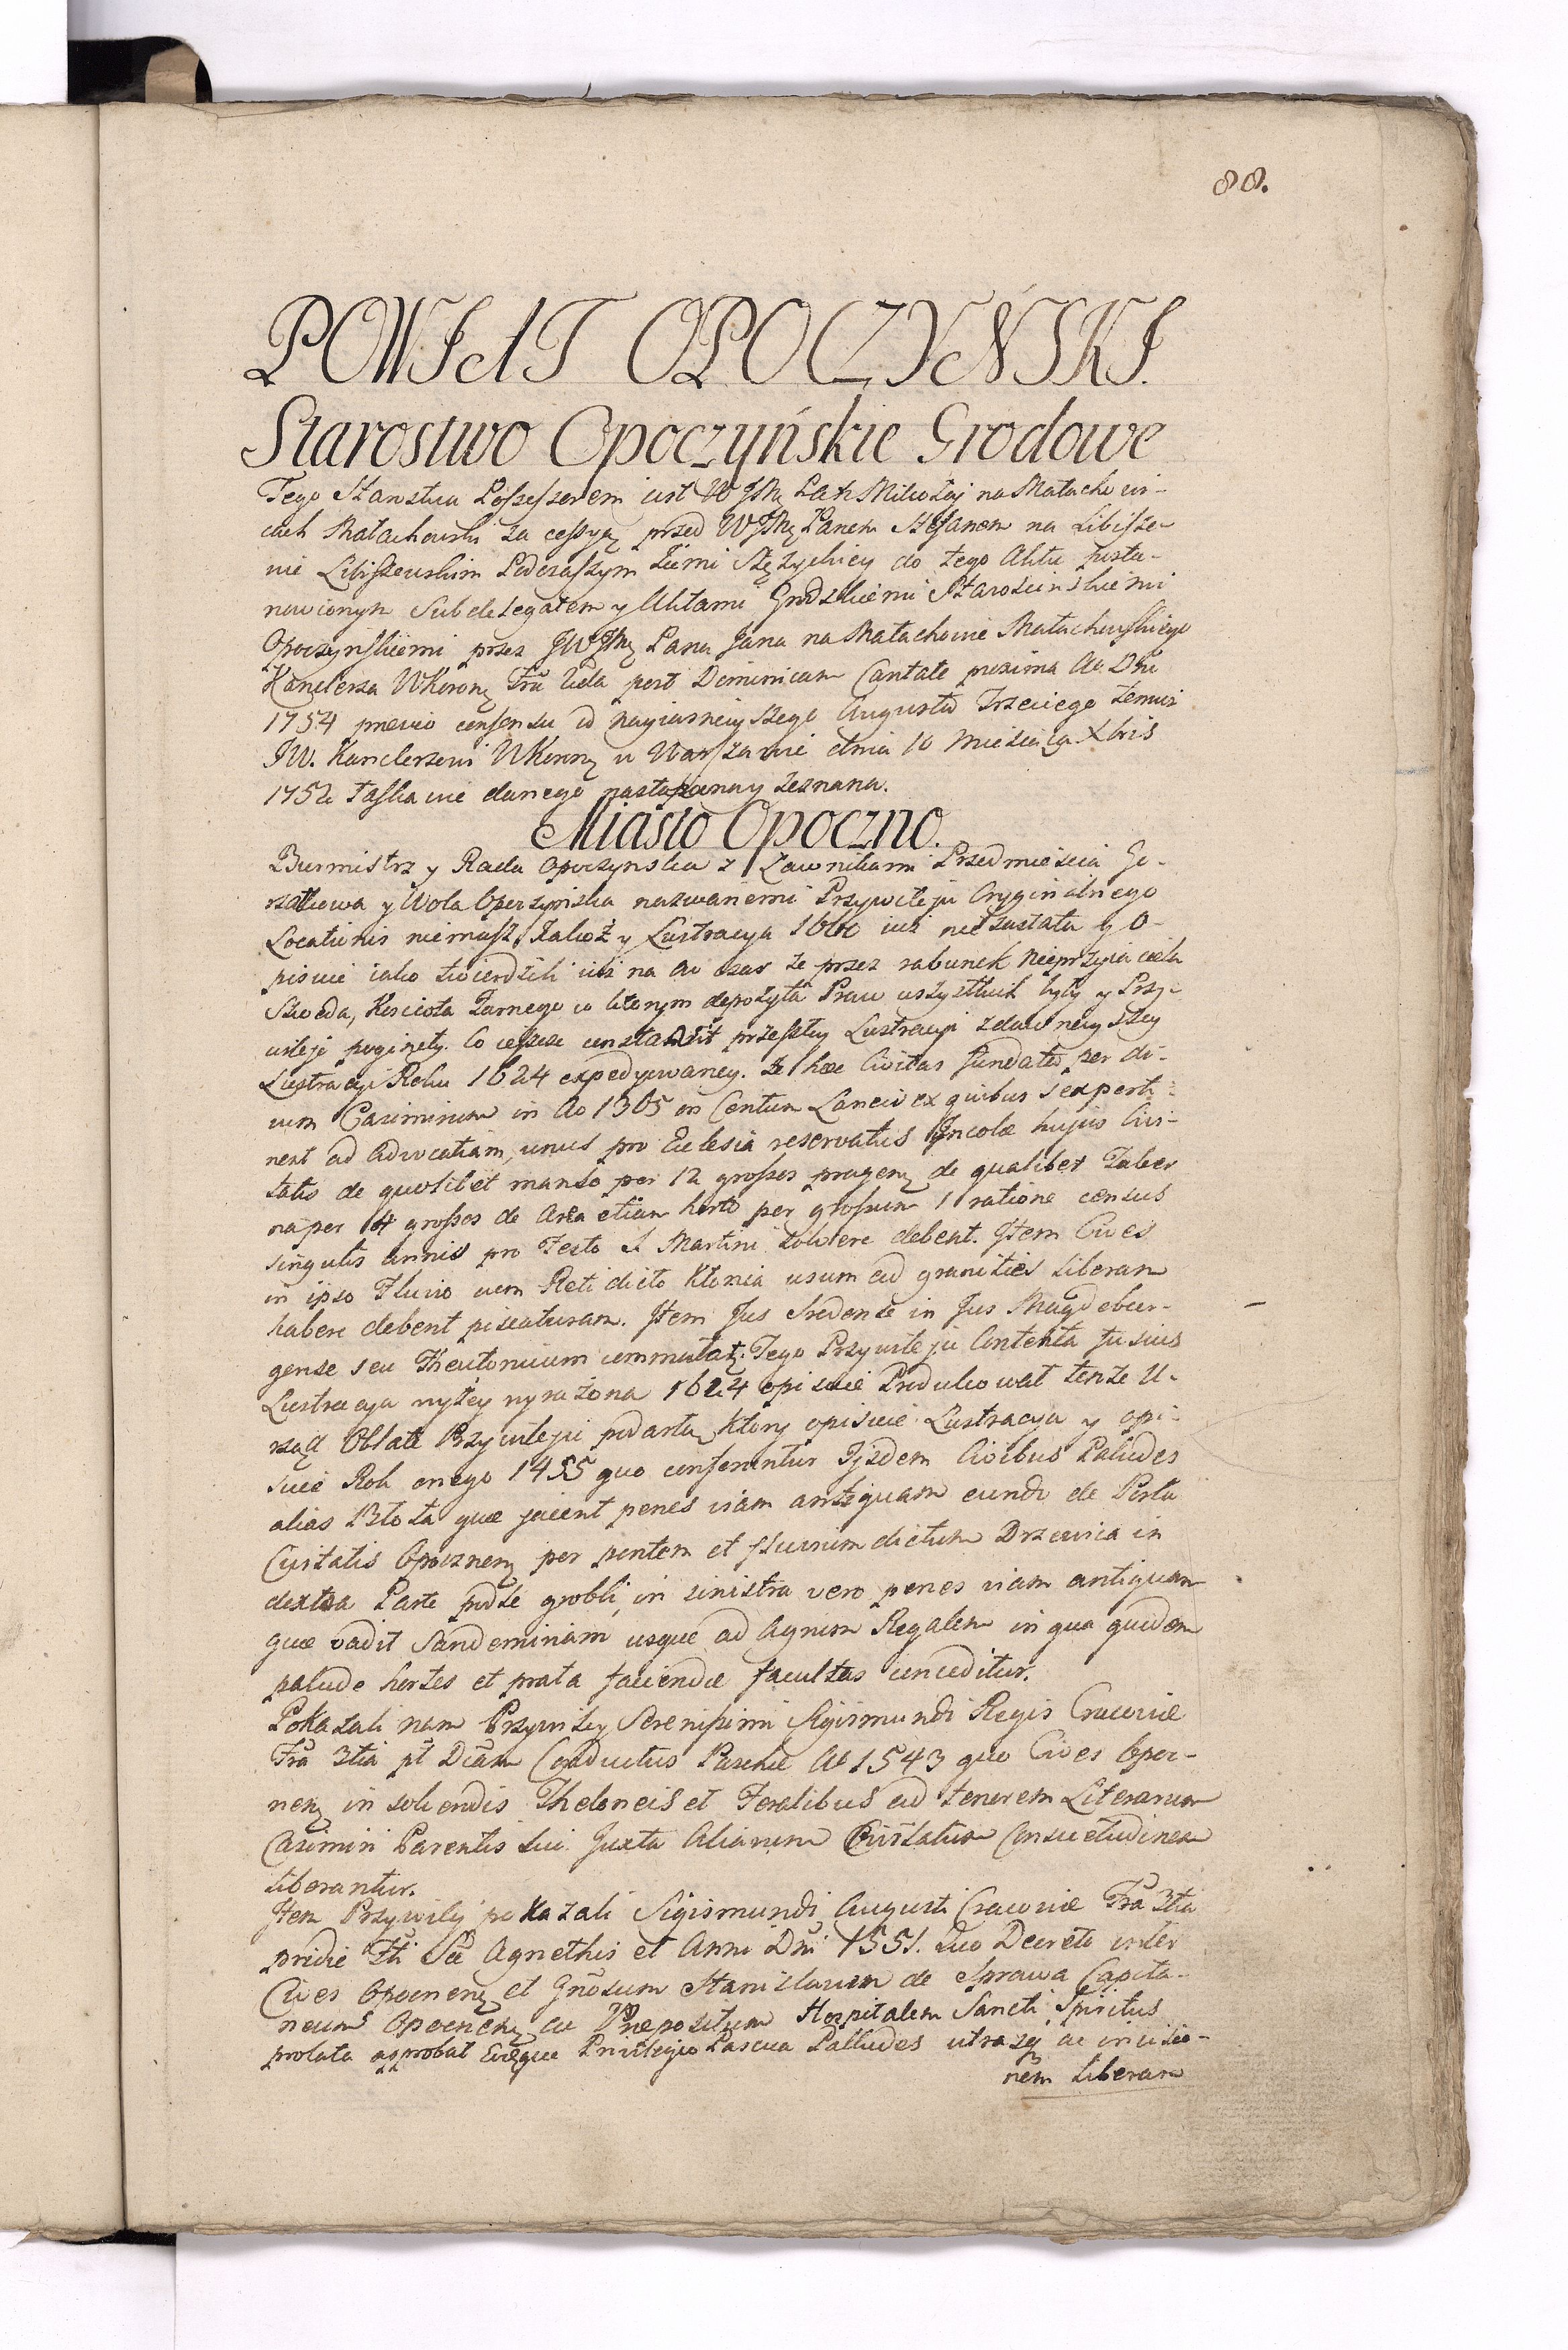 88.
POWIAT OPOCZYŃSKI.
Starostwo Opoczyńskie Grodowe
Tego Starostwa Possessorem iest WJMę Pan Mikołaj na Małachowi-
cach Małachowski za cessyą przed WJMę Panem Stefanem na Libisze-
wie Libiszewskim Podczaszym Ziemi Stężyckiey do tego Aktu posta-
nowionym Subdelegatem y Aktami Grodzkiemi Starościnskiemi
Opoczyńskiemi przez JWJMę Pana Jana na Małachowie Małachowskiego
Kanclerza WKoronę Fra 2cda post Dominicam Cantate proxima Ao Dni
1754 prævio consensu od nayiasnieyszego Augusta Trzeciego temuż
JW. Kanclerzowi WKoronę w Warszawie dnia 10 Miesiąca Xbris
1752 łaskawie danego nastąpioną y zeznaną.
Miasto Opoczno.
Burmistrz y Rada Opoczynska z Ławnikami Przedmieścia Go-
rzałkowa y Wola Opoczyńska nazwanemi Przywileju Oryginalnego
Locationis niemasz, Takoż y Lustracya 1660 iuż nie zastała y o-
pisuie iako twierdzili iuż na on czas że przez rabunek Nieprzyiaciela
Szweda, Kościoła Farnego w ktorym depozyta Praw wszystkich były y Przy-
wileje poginęły. Co ieszcze constabit przeszłey Lustracyi z dawnieyszey
Lustracyi Roku 1624 expedyowaney. że hæc Civitas fundata per di-
vum Casimirum in Ao 1365 on Centum Laneis ex quibus sex perti-
nent ad Advocatiam, unus pro Eclesia reservatus Incolæ hujus Civi-
tatis de quolibet manso per 12 grossos pragenę de qualibet Taber
na per 14 grossos de Area etiam horto per grossum 1 ratione census
singulis annis pro Festo S. Martini solvere debent. Item Cives
in ipso Fluvio cum Reti dicto Kłonia usum ad granities liberam
habere debent piscaturam. Item Jus Sredense in Jus Magdebur-
gense seu Theutonicum commutatę. Tego Przywileju Contenta fusius
Lustracya wyżey wyrażona 1624 opisuie Produkował tenże U-
rząd Oblatę Przywileju podartą Ktory opisuie Lustracya y opi-
suie Rok onego 1455 quo conferuntur Ijsdem Civibus Paludes
alias Błota quæ jacent penes viam antiquam eundo de Porta
Civitatis Opocznenę per pontem et fluvium dictum Drzewica in
dextra Parte podle grobli, in sinistra vero penes viam antiquam
quæ vadit Sandomiriam usque ad Agrum Regalem in qua quidem
palude hortos et prata faciendæ facultas conceditur.
Pokazali nam Przywiley Serenissimi Sigismundi Regis Cracoviæ
Fra 3tia pt Dicam Conductus Paschæ Ao 1543 quo Cives Opocz-
nenę in solvendis Theloneis et Foralibus ad tenorem Literarum
Casimiri Parentis sui Juxta Aliarum Civitatum Consuetudinem
liberantur.
Item Przywiley pokazali Sigismundi Augusti Cracoviæ Fra 3tia
pridie Fti Sæ Agnethis et Anni Dni 1551. Quo Decreto inter
Cives Opocnenę et Gnosum Stanislaum de Sprowa Capita-
neum Opocnenę ac Præpositum Hospitalem Sancti Spiritus
prolata approbat Eweque Privilegio Pascua Palludes utrasq ac incisio-
nem liberam